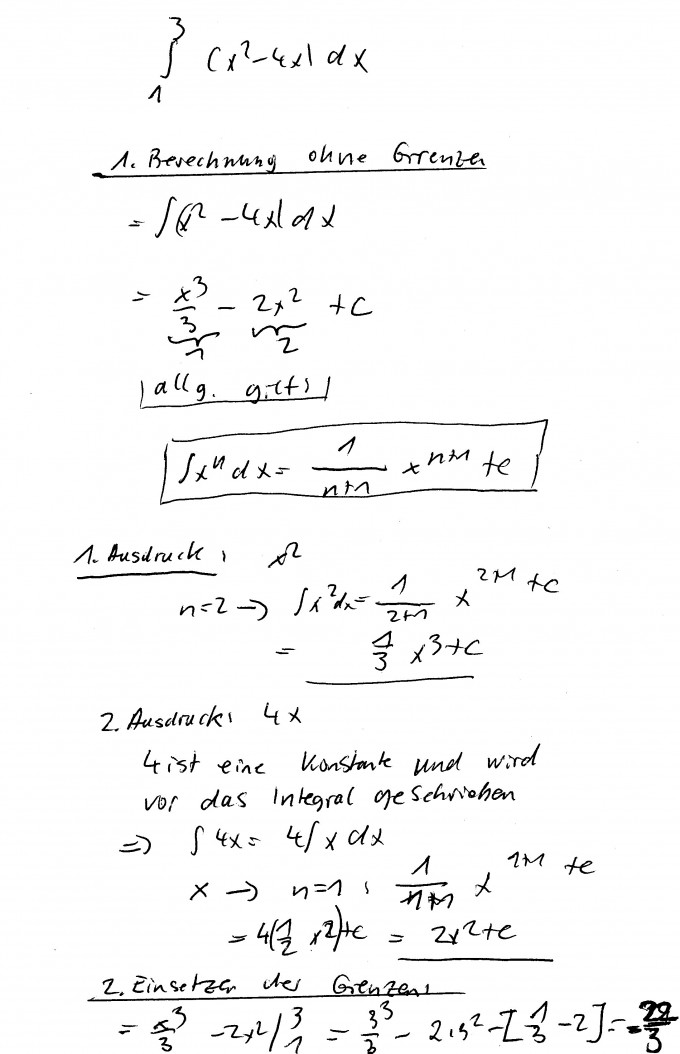 ∫₁³ (x²-4x) dx
1. Berechnung ohne Grenzen
= ∫(x² -4x) dx
= x³/3 - 2x² +C
1 2
allg. gilt:
∫xⁿ dx = 1/(n+1) xⁿ⁺¹ +C
1. Ausdruck: x²
n=2 → ∫x²dx = 1/(2+1) x²⁺¹ +C
= 1/3 x³+C
2. Ausdruck: 4x
4 ist eine Konstante und wird
vor das Integral geschrieben
⇒ ∫4x = 4∫x dx
x → n=1 : 1/(1+1) x¹⁺¹ +C
= 4(1/2 x²)+C = 2x²+C
2. Einsetzen der Grenzen:
= x³/3 -2x² |₁³ = 3³/3 - 2·3² -[1/3 -2] = -22/3